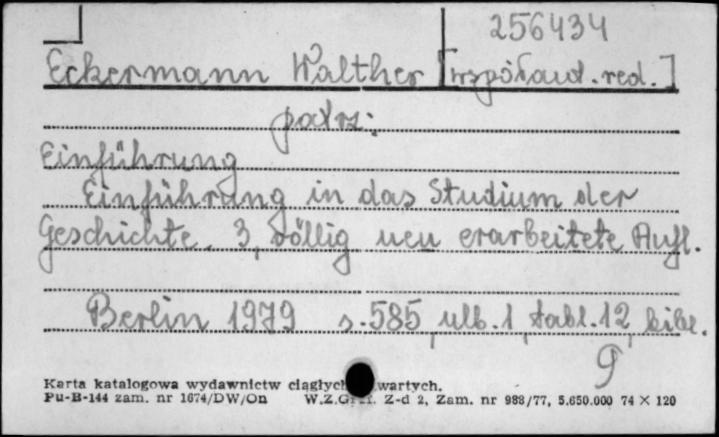 256434
Eckermann Walther [współaut. red.]
patrz:
Einführung
Einführung in das Studium der
Geschichte. 3, völlig neu erarbeitete Aufl.
Berlin 1979 s. 585, ulb. 1, tabl. 12, bibl.
Karta katalogowa wydawnictw ciągłych wartych.
Pu-B-144 zam. nr 1674/DW/On W.Z.Graf. Z-d 2, Zam. nr 988/77, 5.650.000 74 × 120